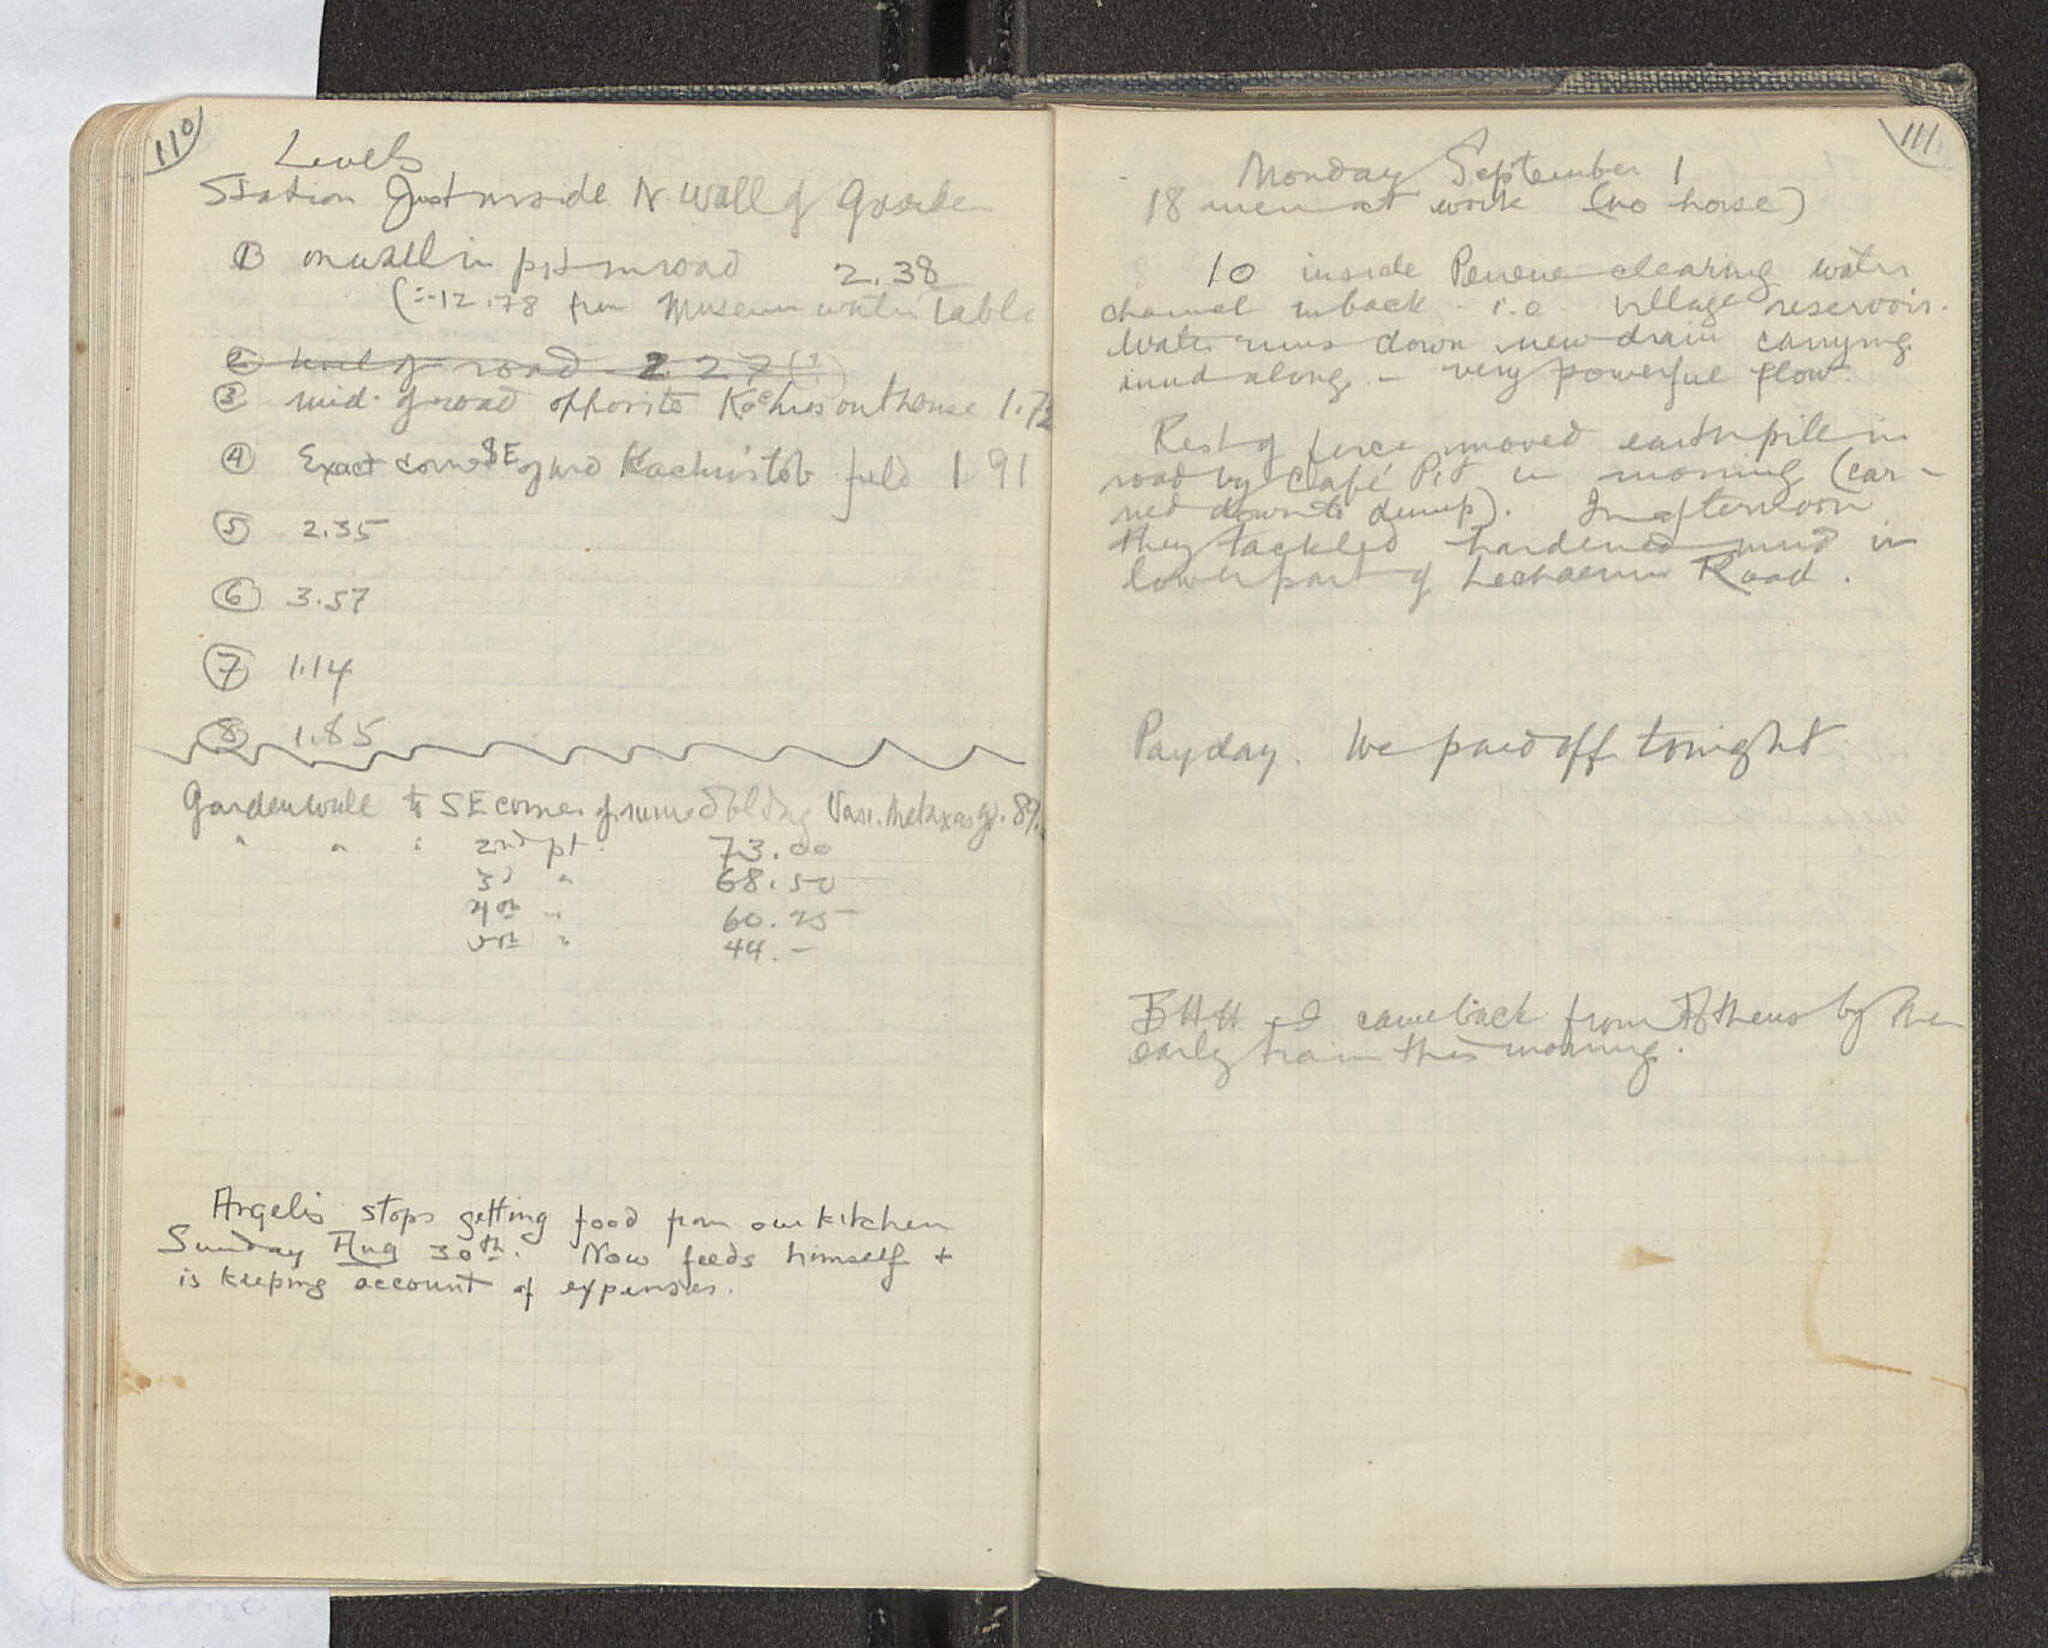 110
Levels
Station Just inside N. Wall of Garden
① on wall in pit in road 2.38
(∴ -12.78 from Museum water table
② level of road 2 27 (?)
③ mid. of road opposite Kachris outhouse 1.72
④ Exact corner SE of Kachristob field 1 91
⑤ 2.35
⑥ 3.57
⑦ 1.14
⑧ 1.85
Garden wall to SE corner of ruined bldng Vasi. Metaxas
" " " 2nd pt. 73.00
3d " 68.50
4th " 60.25
5th " 44.—
Angelis stops getting food from our kitchen
Sunday Aug 30th. Now feeds himself +
is keeping account of expenses.
111
Monday September 1
18 men at work (no horse)
10 inside Peirene clearing water
channel in back - i.e. village reservoir.
Water runs down new drain carrying
mud along. – very powerful flow.
Rest of force moved earth pile in
road by Café Pit in morning (car-
ried down to dump). In afternoon
they tackled hardened mud in
lower part of Lechaeum Road.
Payday. We paid off tonight
BHH + I came back from Athens by the
early train this morning.